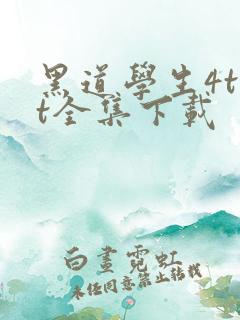 黑道學生4t
t全集下載
白晝霓虹
未经同意禁止转载